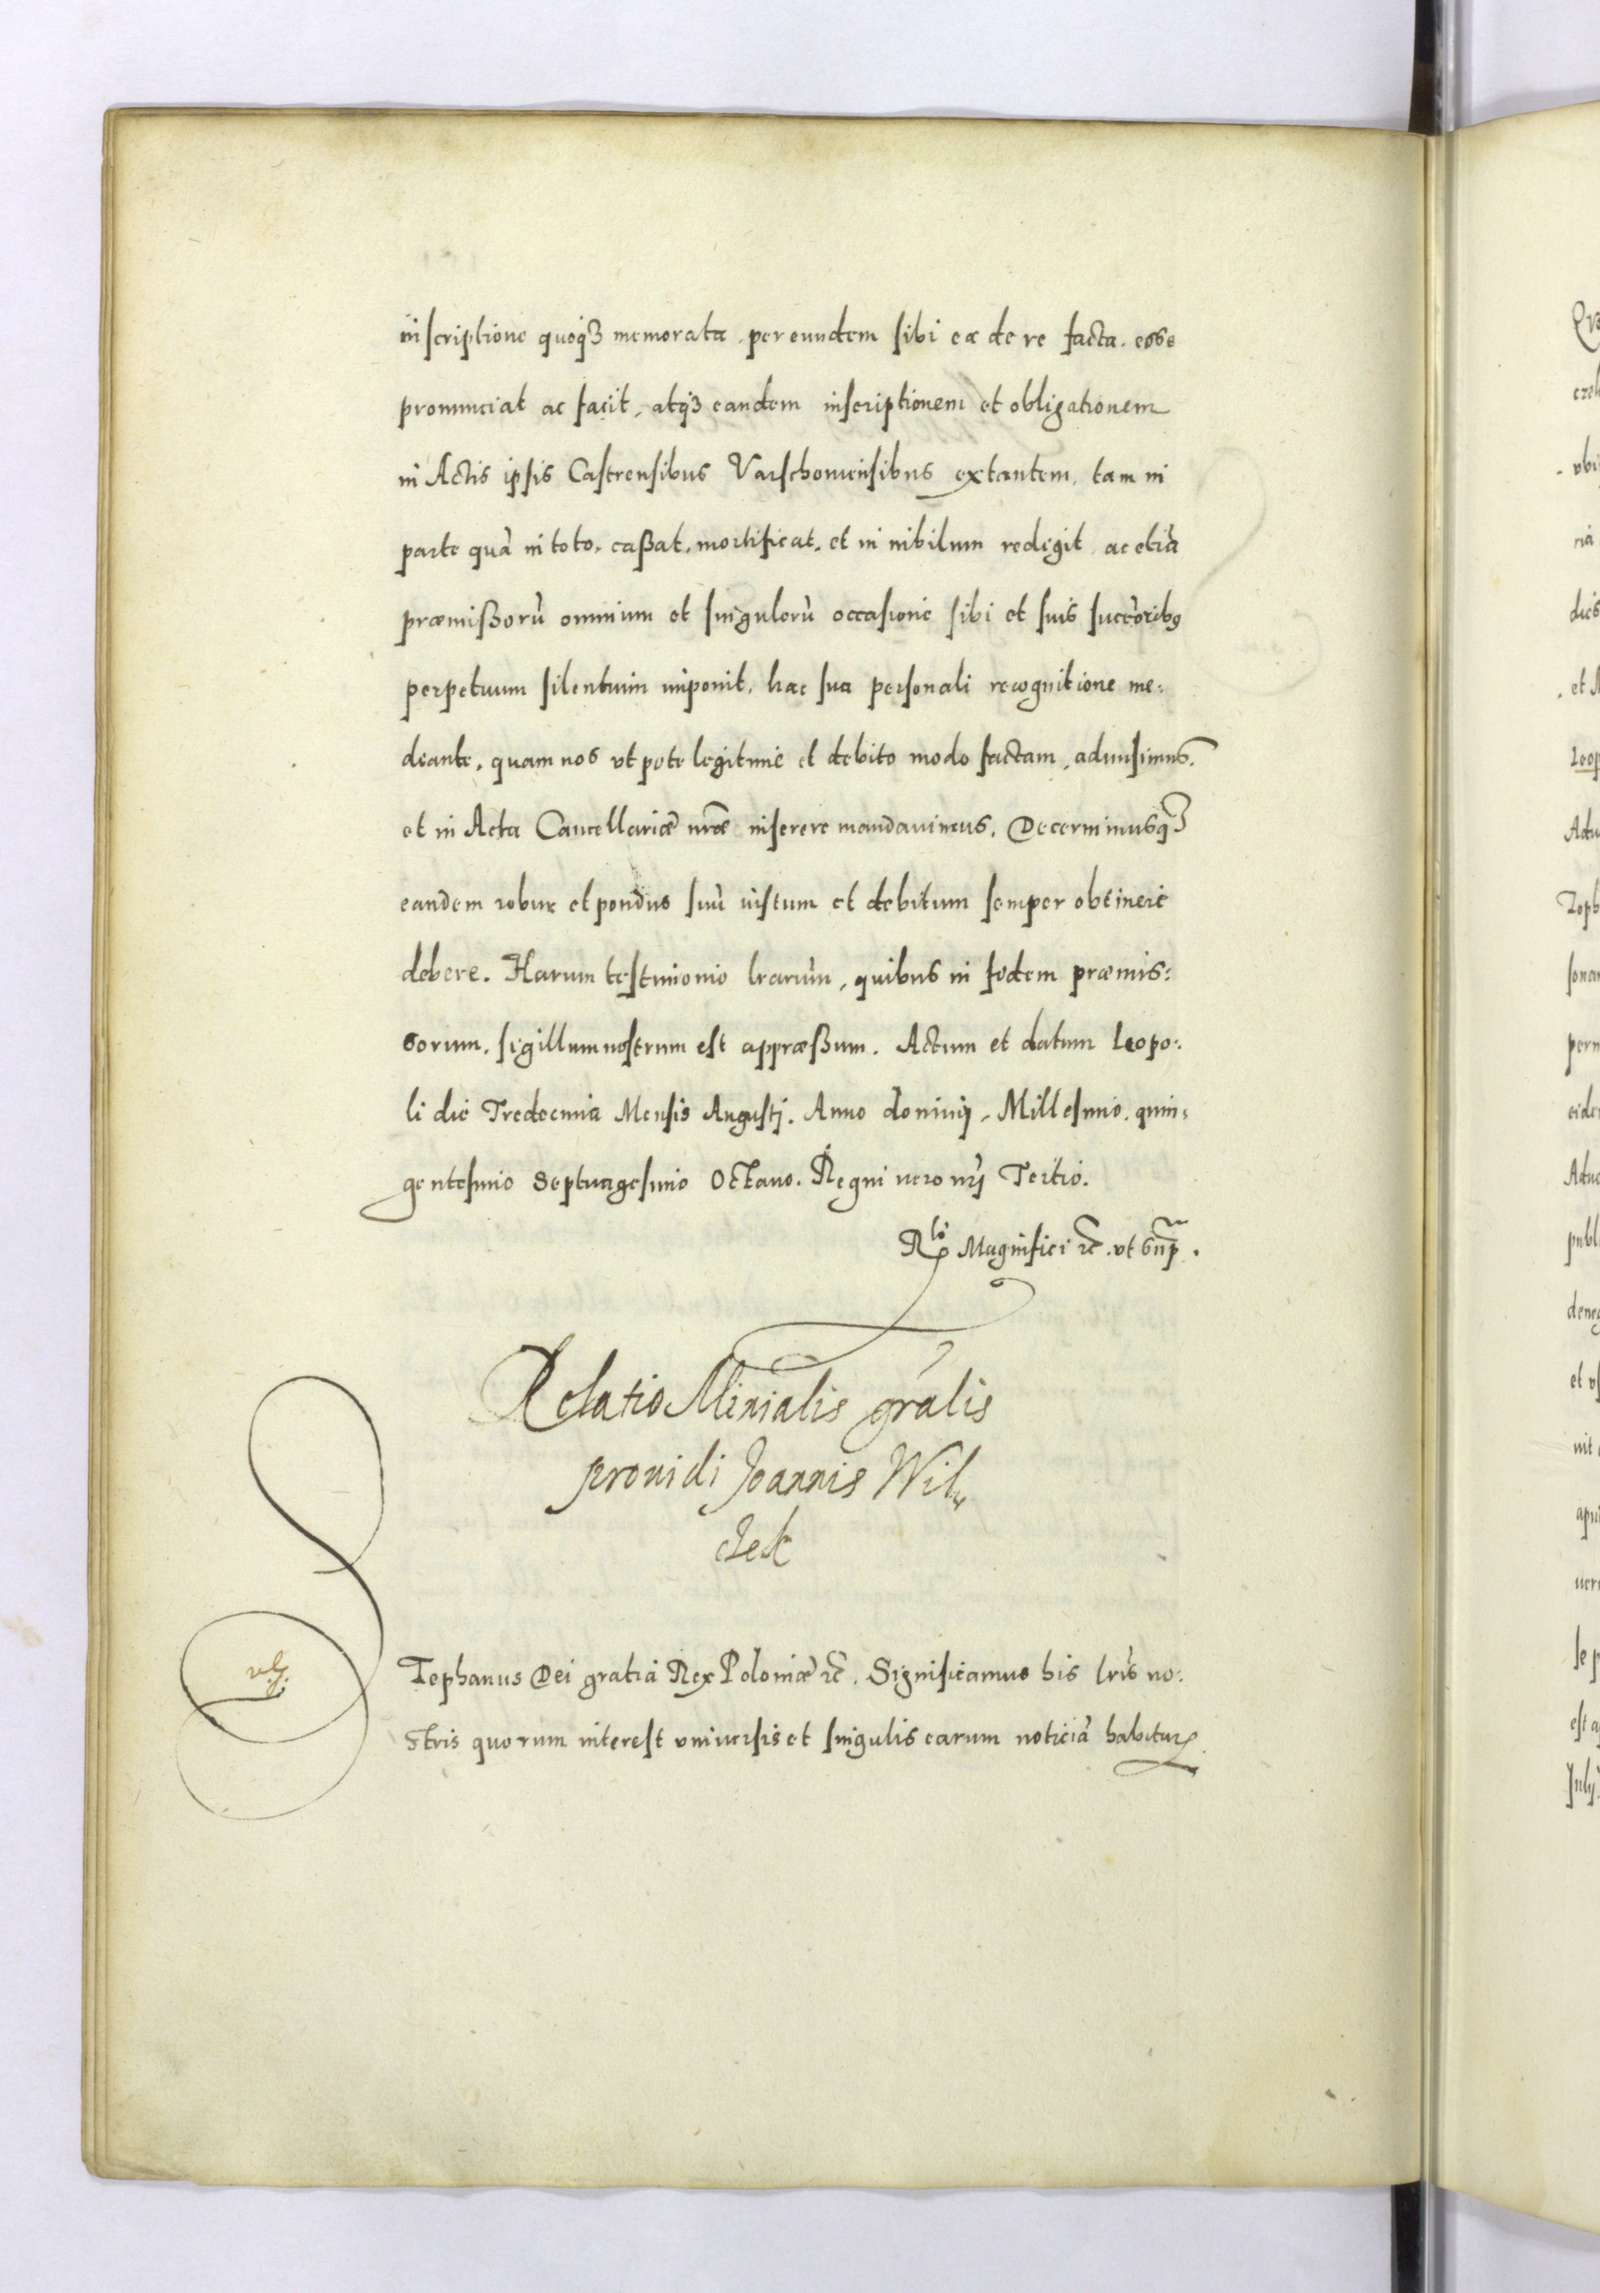 inscriptione quoqꝫ memorata, per eundem sibi ea de re facta, esse
pronunciat ac facit, atqꝫ eandem inscriptionem et obligationem
in Actis ipsis Castrensibus Varschoviensibus extantem, tam in
parte quã in toto, caßat, mortificat, et in nihilum redigit, ac etiã
præmißorũ omnium et singulorũ occasione sibi et suis succõribꝯ
perpetuum silentium imponit, hac sua personali recognitione me:
diante, quam nos utpote legitime et debito modo factam, admisimus,
et in Acta Cancellariæ nr̃æ inserere mandavimus. Decernimusqꝫ
eandem robur et pondus suũ iustum et debitum semper obtinere
debere. Harum testimonio lrarũm, quibus in fidem præmis:
sorum, sigillum nostrum est appræßum. Actum et datum Leopo:
li die Tredecima Mensis Augustj. Anno dominij, Millesimo, quin:
gentesimo Septuagesimo Octavo. Regni vero nrj̃ Tertio.
Rlõ Magnifici ꝛc̃. ut sup̃.
Relatio Mĩnialis gr̃alis
prouidi Joannis Wil,,
czek
Tephanus Dei gratia Rex Poloniæ ꝛc̃. Significamus his lrĩs no:
stris quorum interest universis et singulis earum noticiã habiturꝭ